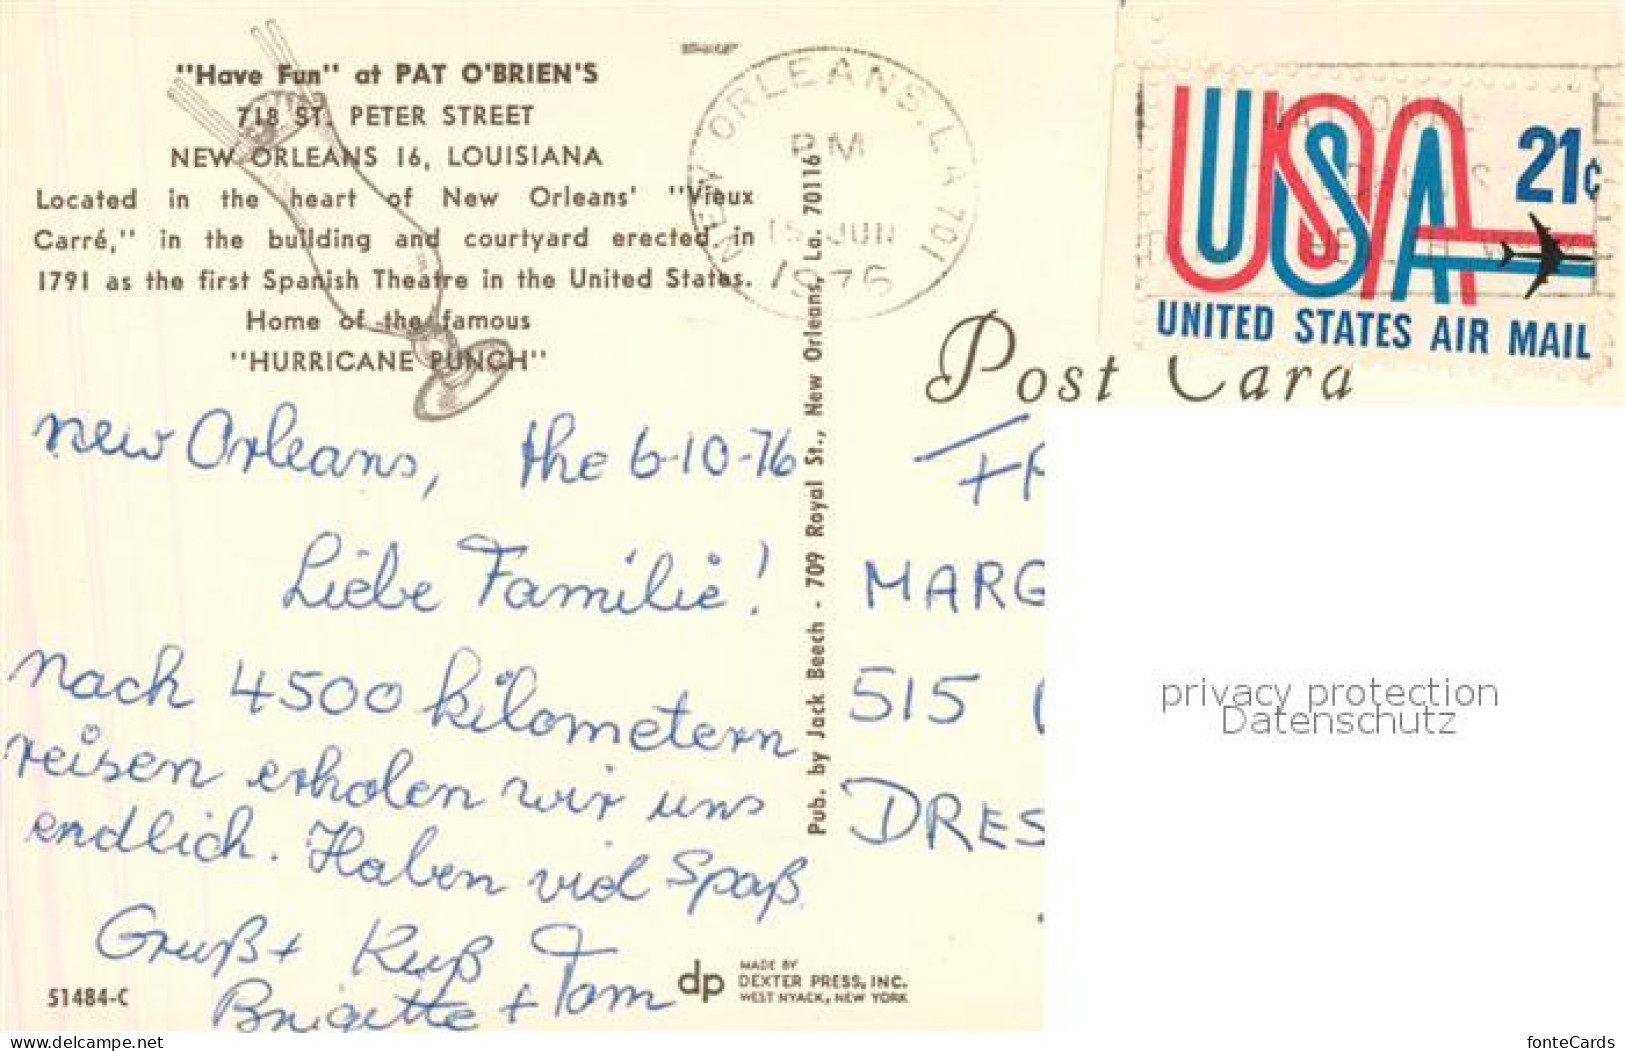 "Have Fun" at PAT O'BRIEN'S
718 ST. PETER STREET
NEW ORLEANS 16, LOUISIANA
Located in the heart of New Orleans' "Vieux
Carré," in the building and courtyard erected in
1791 as the first Spanish Theatre in the United States.
Home of the famous
"HURRICANE PUNCH"
new Orleans, the 6-10-76
Liebe Familie!
nach 4500 kilometern
reisen erholen wir uns
endlich. Haben viel Spaß.
Gruß + Kuß Tom
Brigitte +
51484-C
dp MADE BY
DEXTER PRESS, INC.
WEST NYACK, NEW YORK
Pub. by Jack Beech - 709 Royal St., New Orleans, La. 70116
NEW ORLEANS, LA 701
PM
15 JUN
1976
USA 21c
UNITED STATES AIR MAIL
Post Card
MARG
515
DRES
privacy protection
Datenschutz
www.delcampe.net
fonteCards